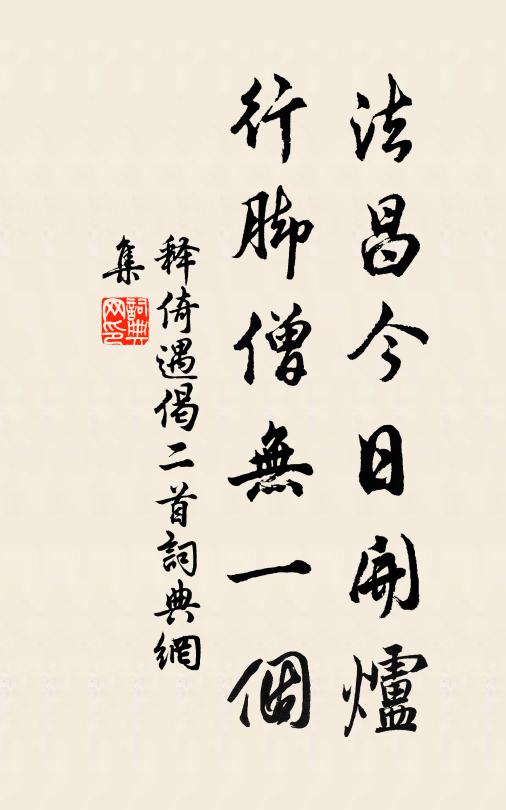 法昌今日開爐
行脚僧無一個
释倚遇偈二首詞典網
集
詞典網印